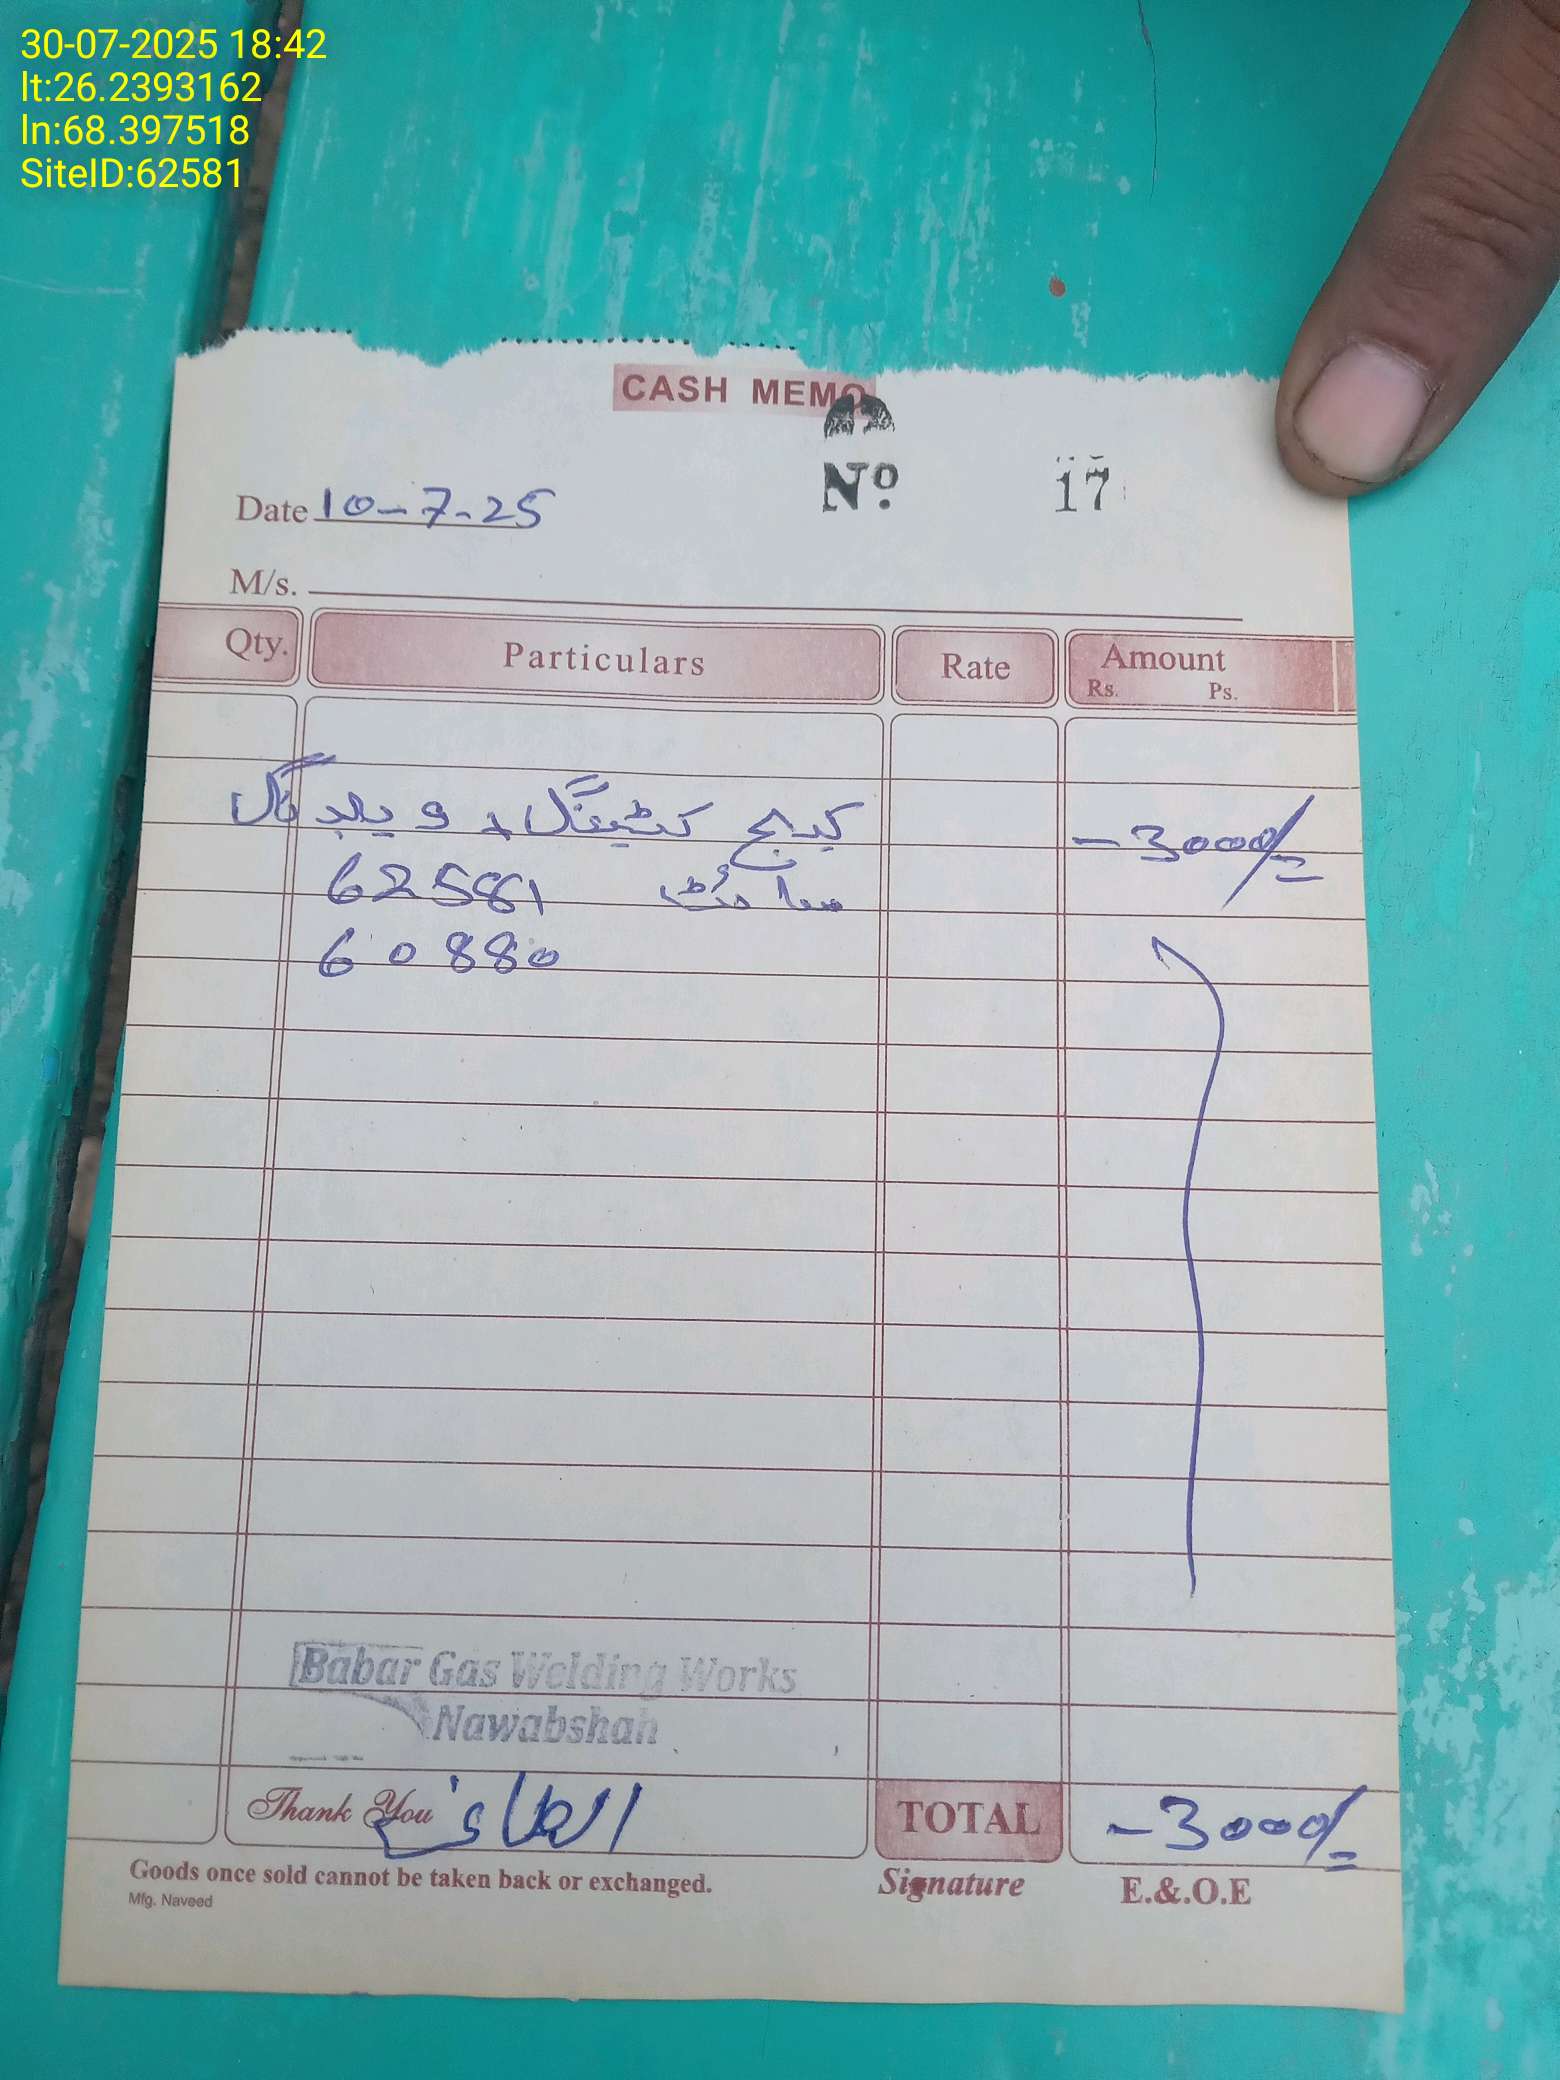 30-07-2025 18:42
lt:26.2393162
ln:68.397518
SiteID:62581
CASH MEMO
No 17
Date 10-7-25
M/s.
Qty. Particulars Rate Amount
Rs. Ps.
کیج کٹینگ + ویلڈنگ -3000/=
سائٹ 62581
60880
Babar Gas Welding Works
Nawabshah
Thank You
TOTAL -3000/=
Goods once sold cannot be taken back or exchanged.
Signature E.&.O.E
Mfg. Naveed